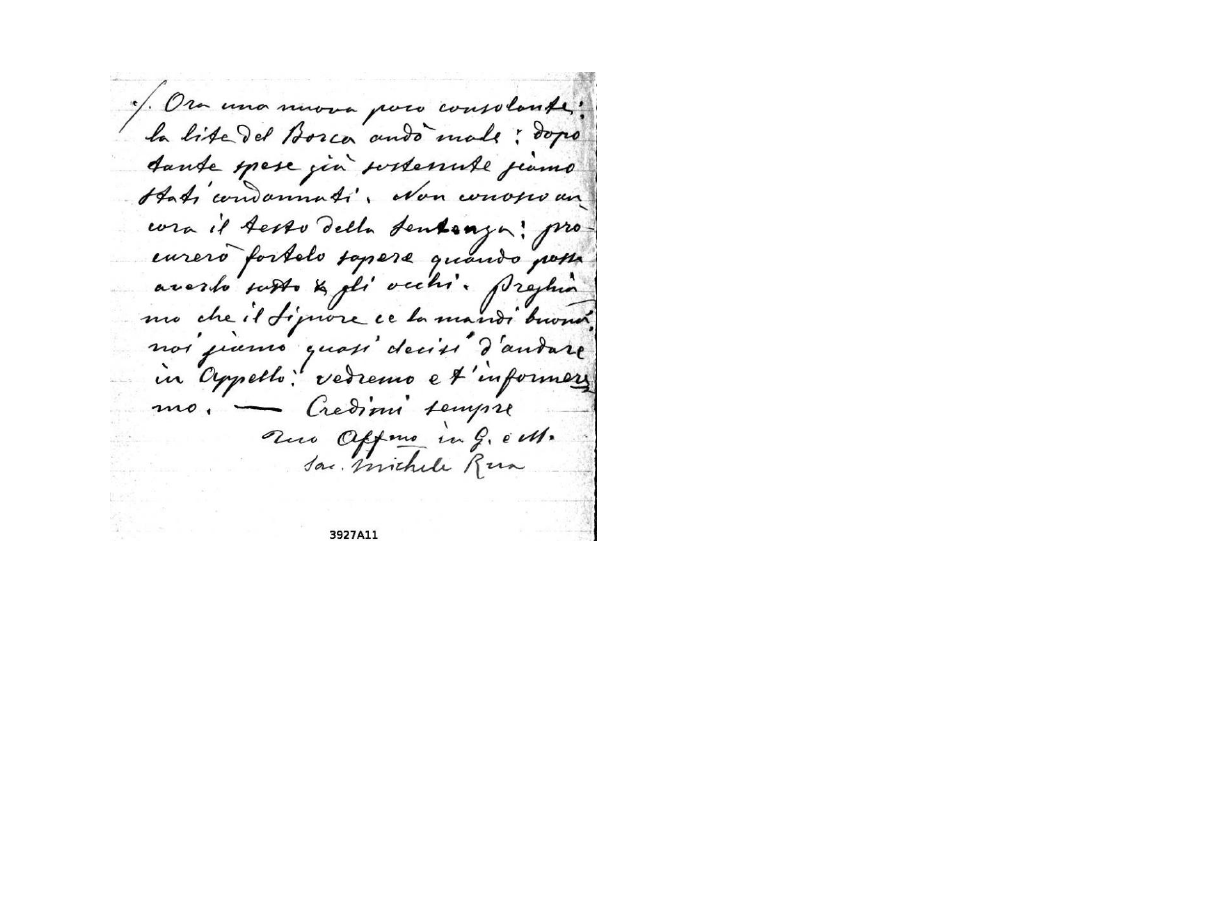 ·/. Ora una nuova poco consolante:
la lite del Bosca andò male: dopo
tante spese già sostenute siamo
stati condannati. Non conosco an
cora il testo della sentenza: pro
curerò fartelo sapere quando possa
averlo sotto gli occhi. Preghia
mo che il Signore ce la mandi buona;
noi siamo quasi decisi d'andare
in Appello: vedremo e t'informere
mo. — Credimi sempre
Tuo Affmo in G. e M.
Sac. Michele Rua
3927A11